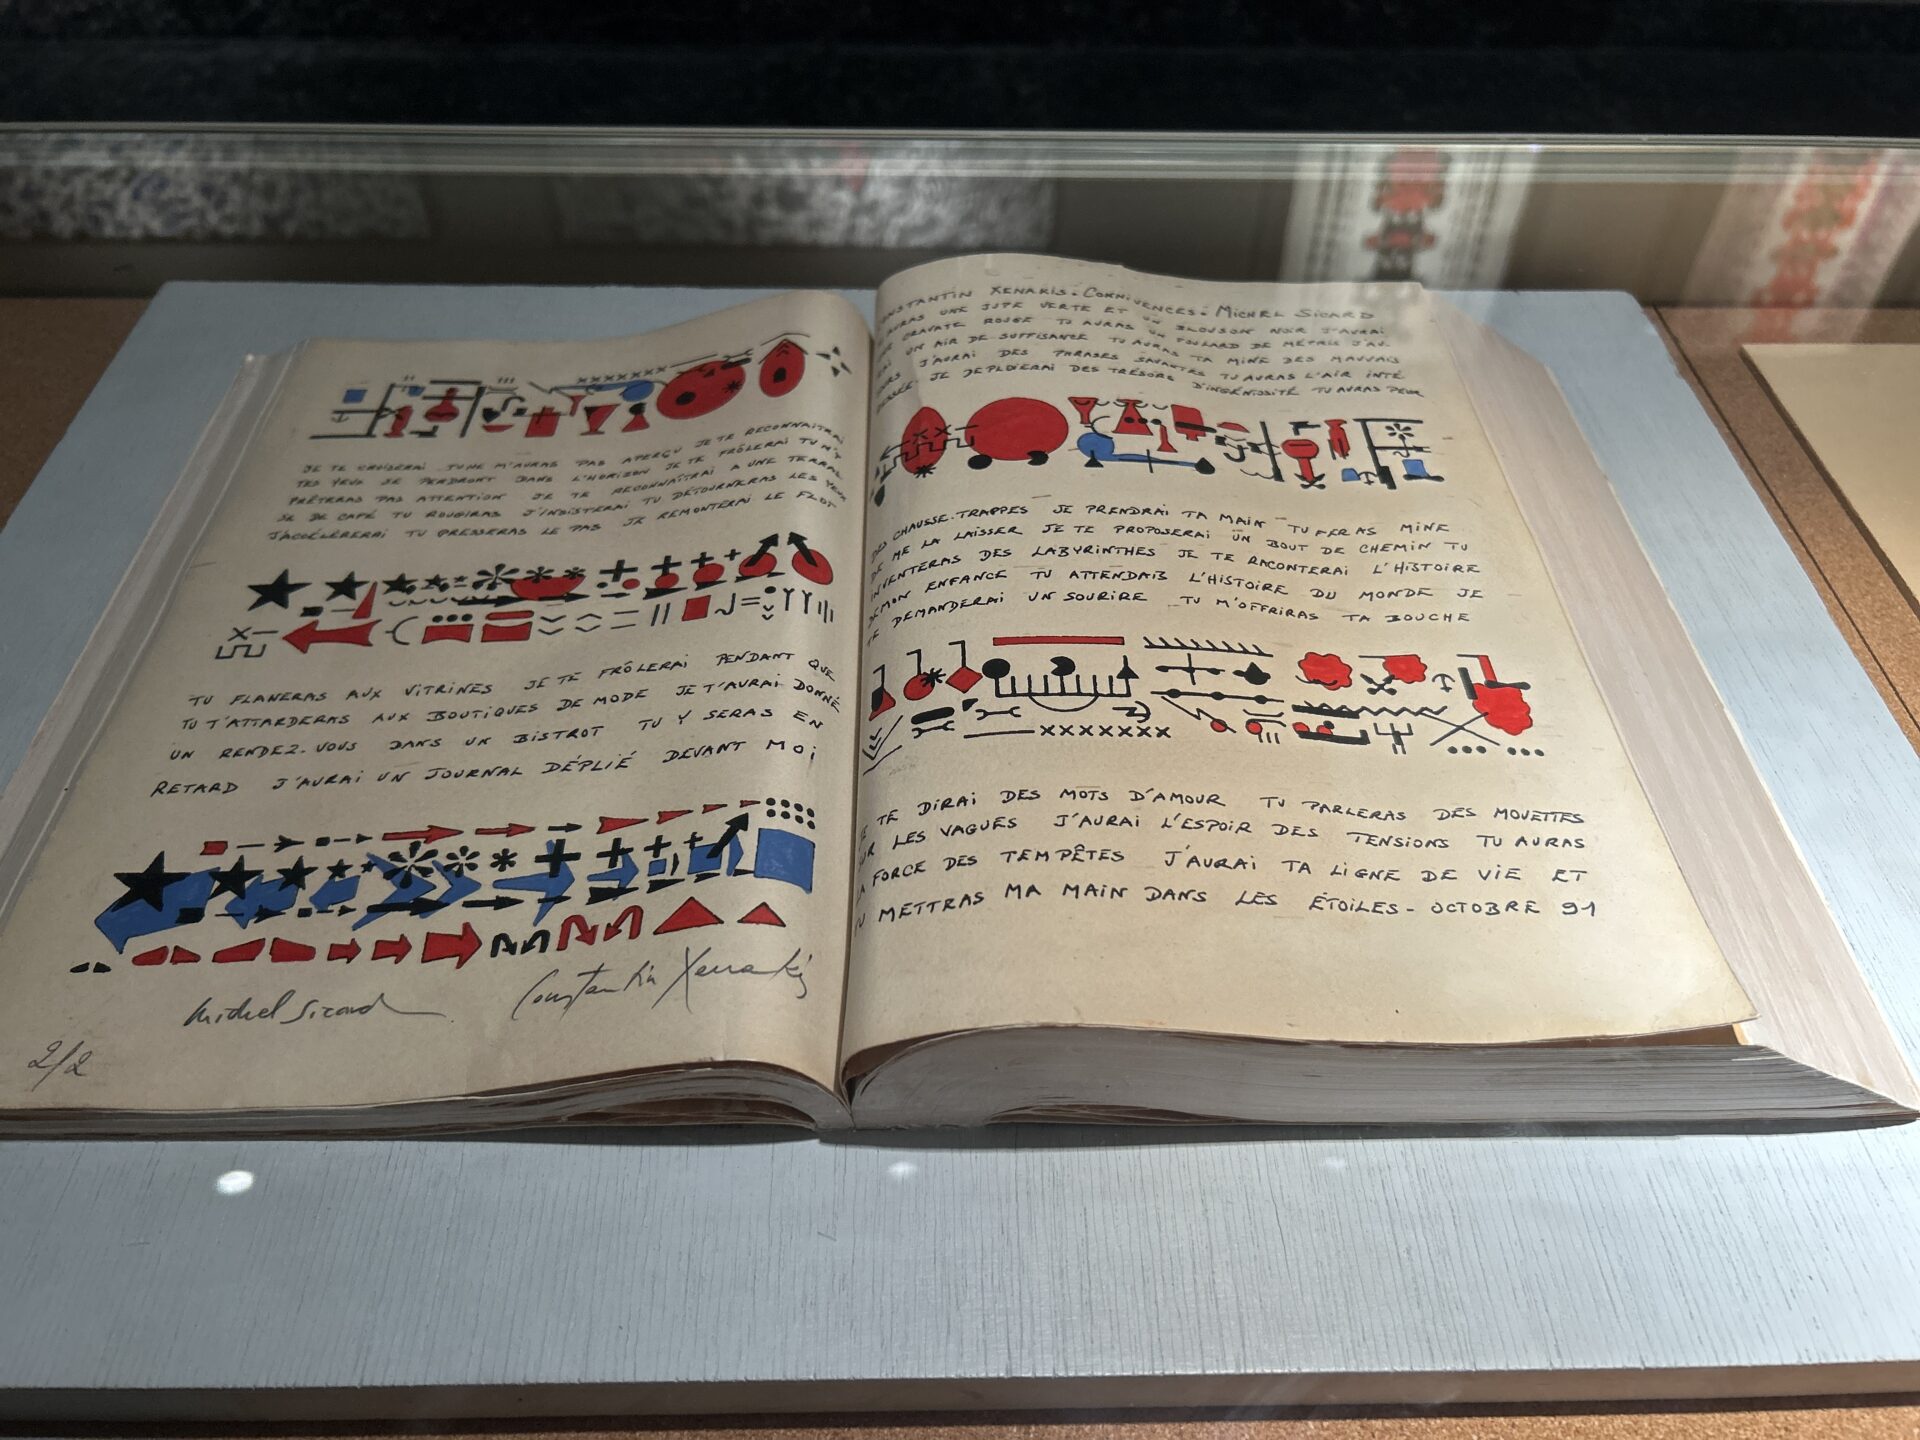 JE TE CROISERAI TU NE M'AURAS PAS APERÇU JE TE RECONNAITRAI
TES YEUX SE PERDRONT DANS L'HORIZON JE TE FRÔLERAI TU N'Y
PRÊTERAS PAS ATTENTION JE TE RECONNAÎTRAI A UNE TERRAS
SE DE CAFÉ TU ROUGIRAS J'INSISTERAI TU DÉTOURNERAS LES YEUX
J'ACCÉLÈRERAI TU PRESSERAS LE PAS JE REMONTERAI LE FLOT
TU FLANERAS AUX VITRINES JE TE FRÔLERAI PENDANT QUE
TU T'ATTARDERAS AUX BOUTIQUES DE MODE JE T'AURAI DONNÉ
UN RENDEZ-VOUS DANS UN BISTROT TU Y SERAS EN
RETARD J'AURAI UN JOURNAL DÉPLIÉ DEVANT MOI
Michel Sicard Constantin Xenakis
2/2
CONSTANTIN XENAKIS. CONNIVENCES. MICHEL SICARD
AURAS UNE JUPE VERTE ET UN BLOUSON NOIR J'AURAI
CRAVATE ROUGE TU AURAS UN FOULARD DE MÉTRIS J'AU.
UN AIR DE SUFFISANCE TU AURAS TA MINE DES MAUVAIS
JOURS J'AURAI DES PHRASES SAVANTES TU AURAS L'AIR INTÉ
RESSÉE JE DEPLOIERAI DES TRÉSORS D'INGÉNIOSITÉ TU AURAS PEUR
DES CHAUSSE-TRAPPES JE PRENDRAI TA MAIN TU FERAS MINE
DE ME LA LAISSER JE TE PROPOSERAI UN BOUT DE CHEMIN TU
INVENTERAS DES LABYRINTHES JE TE RACONTERAI L'HISTOIRE
DE MON ENFANCE TU ATTENDAIS L'HISTOIRE DU MONDE JE
TE DEMANDERAI UN SOURIRE TU M'OFFRIRAS TA BOUCHE
JE TE DIRAI DES MOTS D'AMOUR TU PARLERAS DES MOUETTES
SUR LES VAGUES J'AURAI L'ESPOIR DES TENSIONS TU AURAS
LA FORCE DES TEMPÊTES J'AURAI TA LIGNE DE VIE ET
TU METTRAS MA MAIN DANS LES ÉTOILES - OCTOBRE 91